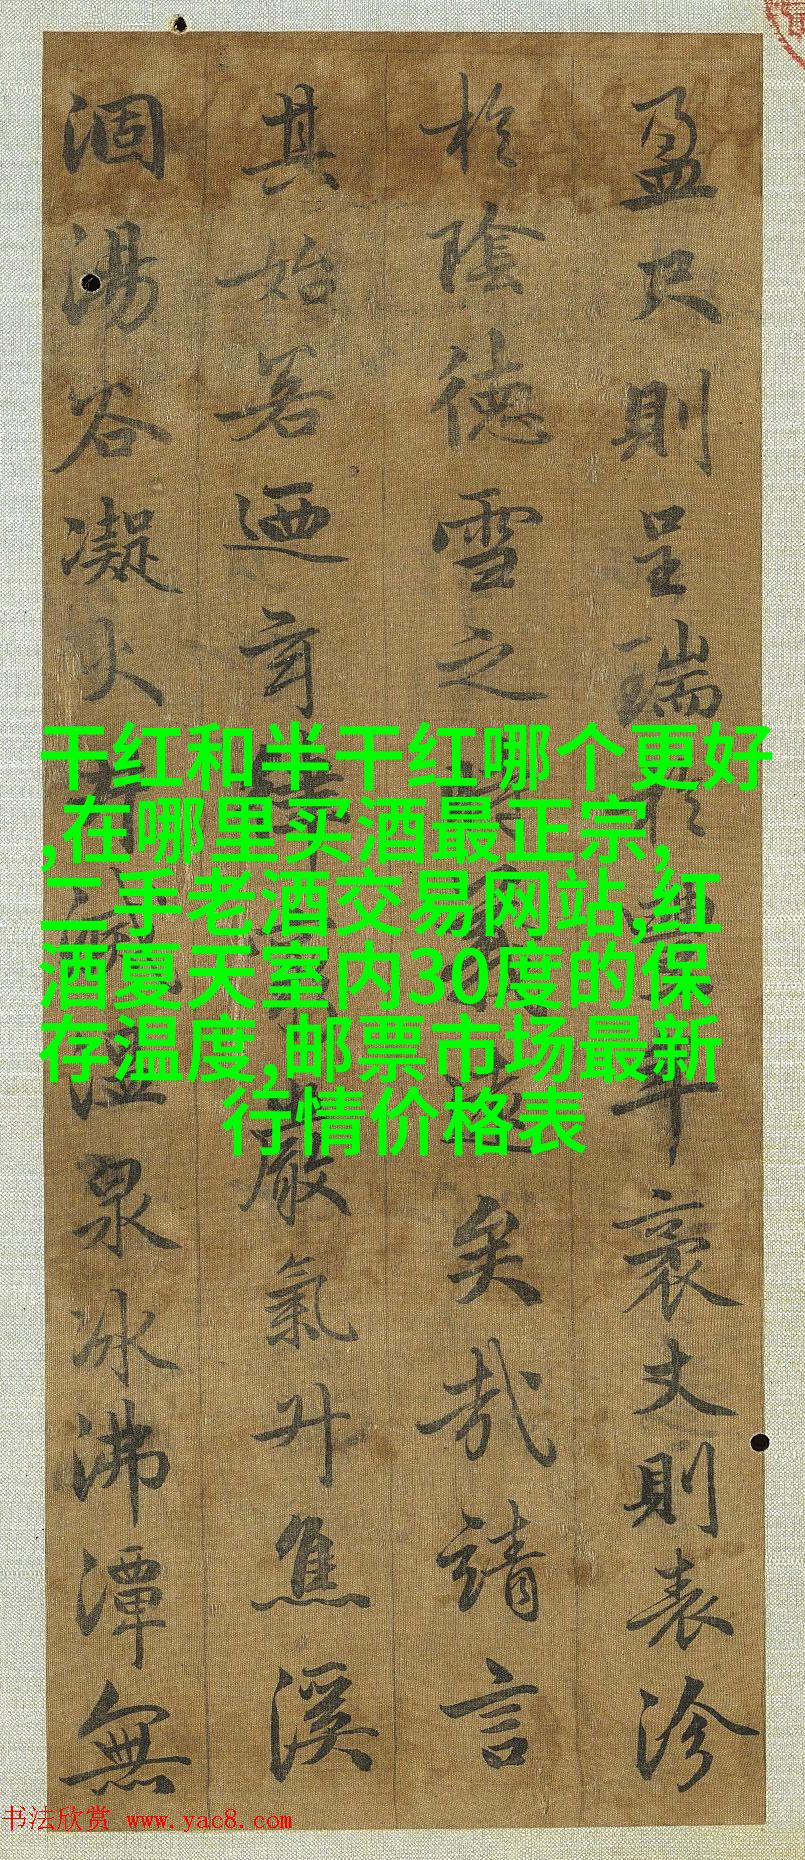 盈尺則呈瑞於年袤丈則表沴
於陰德雪之遠矣哉請言
其始若迺玄律嚴氣升焦溪
涸湯谷凝火溫泉冰沸潭無
干红和半干红哪个更好
,在哪里买酒最正宗,
二手老酒交易网站,红
酒夏天室内30度的保
存温度,邮票市场最新
行情价格表
书法欣赏 www.yac8.com